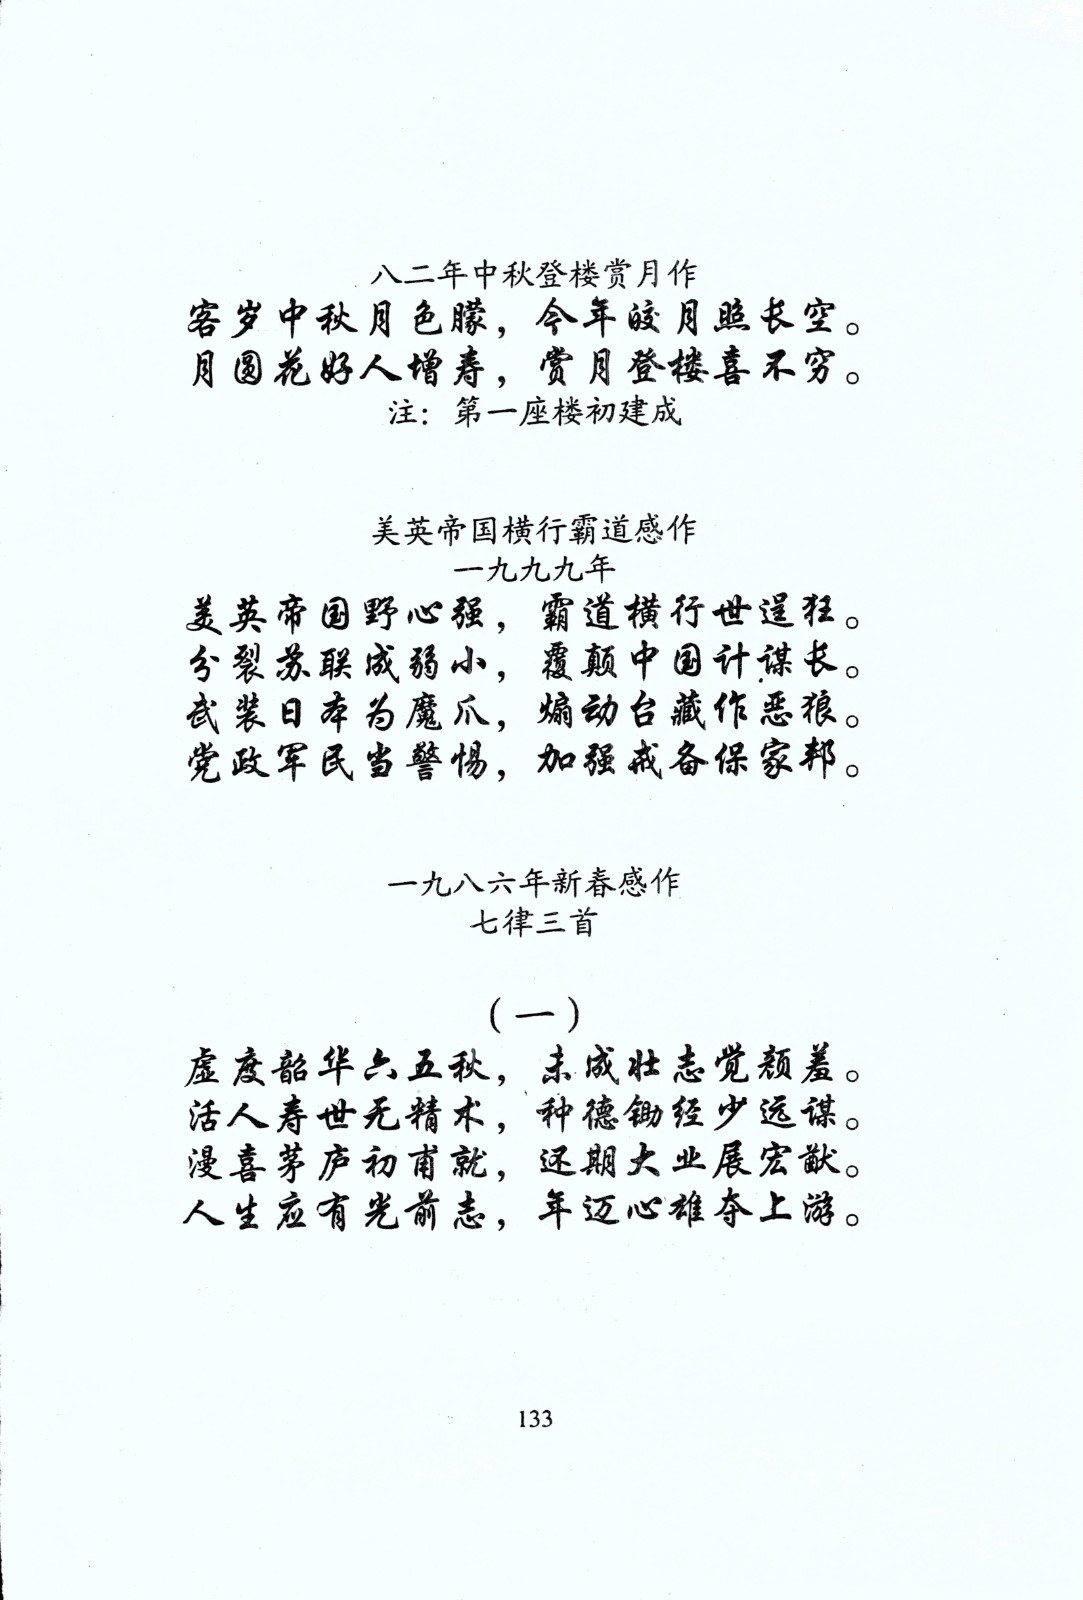 八二年中秋登楼赏月作
客岁中秋月色朦，今年皎月照长空。
月圆花好人增寿，赏月登楼喜不穷。
注：第一座楼初建成
美英帝国横行霸道感作
一九九九年
美英帝国野心强，霸道横行世逞狂。
分裂苏联成弱小，覆颠中国计谋长。
武装日本为魔爪，煽动台藏作恶狼。
党政军民当警惕，加强戒备保家邦。
一九八六年新春感作
七律三首
（一）
虚度韶华六五秋，未成壮志觉颜羞。
活人寿世无精术，种德锄经少远谋。
漫喜茅庐初甫就，还期大业展宏猷。
人生应有光前志，年迈心雄夺上游。
133